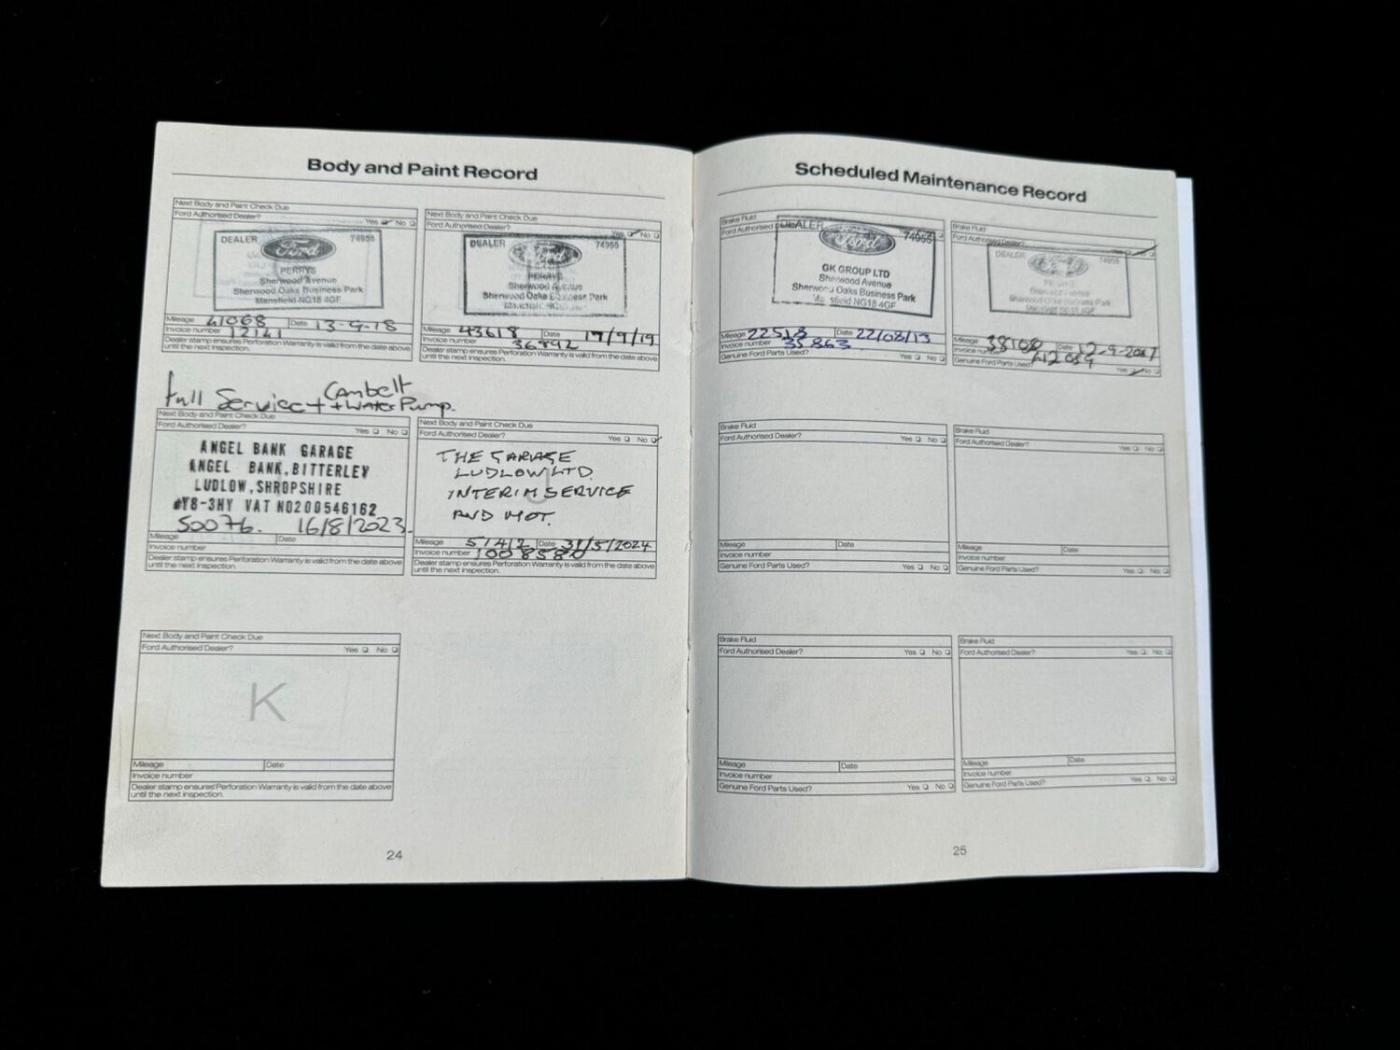 Body and Paint Record
Next Body and Paint Check Due
Ford Authorised Dealer? Yes No
DEALER Ford 74955
PERRYS
Sherwood Avenue
Sherwood Oaks Business Park
Mansfield NG18 4GF
Mileage 41068 Date 13-9-18
Invoice number 12141
Dealer stamp ensures Perforation Warranty is valid from the date above
until the next inspection.
Next Body and Paint Check Due
Ford Authorised Dealer? Yes No
DEALER Ford 74955
PERRYS
Sherwood Avenue
Sherwood Oaks Business Park
Mileage 43618 Date 17/9/19
Invoice number 36792
Dealer stamp ensures Perforation Warranty is valid from the date above
until the next inspection.
full Service + Cambelt
+ Water Pump.
Next Body and Paint Check Due
Ford Authorised Dealer? Yes No
ANGEL BANK GARAGE
ANGEL BANK, BITTERLEY
LUDLOW, SHROPSHIRE
SY8-3HY VAT NO200546162
50076. 16/8/2023.
Mileage Date
Invoice number
Dealer stamp ensures Perforation Warranty is valid from the date above
until the next inspection.
Next Body and Paint Check Due
Ford Authorised Dealer? Yes No
THE GARAGE
LUDLOW LTD.
INTERIM SERVICE
AND MOT.
Mileage 51412 Date 31/5/2024
Invoice number
Dealer stamp ensures Perforation Warranty is valid from the date above
until the next inspection.
Next Body and Paint Check Due
Ford Authorised Dealer? Yes No
K
Mileage Date
Invoice number
Dealer stamp ensures Perforation Warranty is valid from the date above
until the next inspection.
24
Scheduled Maintenance Record
Brake Fluid
Ford Authorised DEALER Ford 74955
GK GROUP LTD
Sherwood Avenue
Sherwood Oaks Business Park
Mansfield NG18 4GF
Mileage 22518 Date 22/08/13
Invoice number 35863
Genuine Ford Parts Used? Yes No
Brake Fluid
Ford Authorised Dealer?
DEALER 74955
Sherwood Avenue
Sherwood Oaks Business Park
Mansfield NG18 4GF
Mileage 38108 Date 12-9-2017
Invoice number
Genuine Ford Parts Used? Yes No
Brake Fluid
Ford Authorised Dealer? Yes No
Mileage Date
Invoice number
Genuine Ford Parts Used? Yes No
Brake Fluid
Ford Authorised Dealer? Yes No
Mileage Date
Invoice number
Genuine Ford Parts Used? Yes No
Brake Fluid
Ford Authorised Dealer? Yes No
Mileage Date
Invoice number
Genuine Ford Parts Used? Yes No
Brake Fluid
Ford Authorised Dealer? Yes No
Mileage Date
Invoice number
Genuine Ford Parts Used? Yes No
25